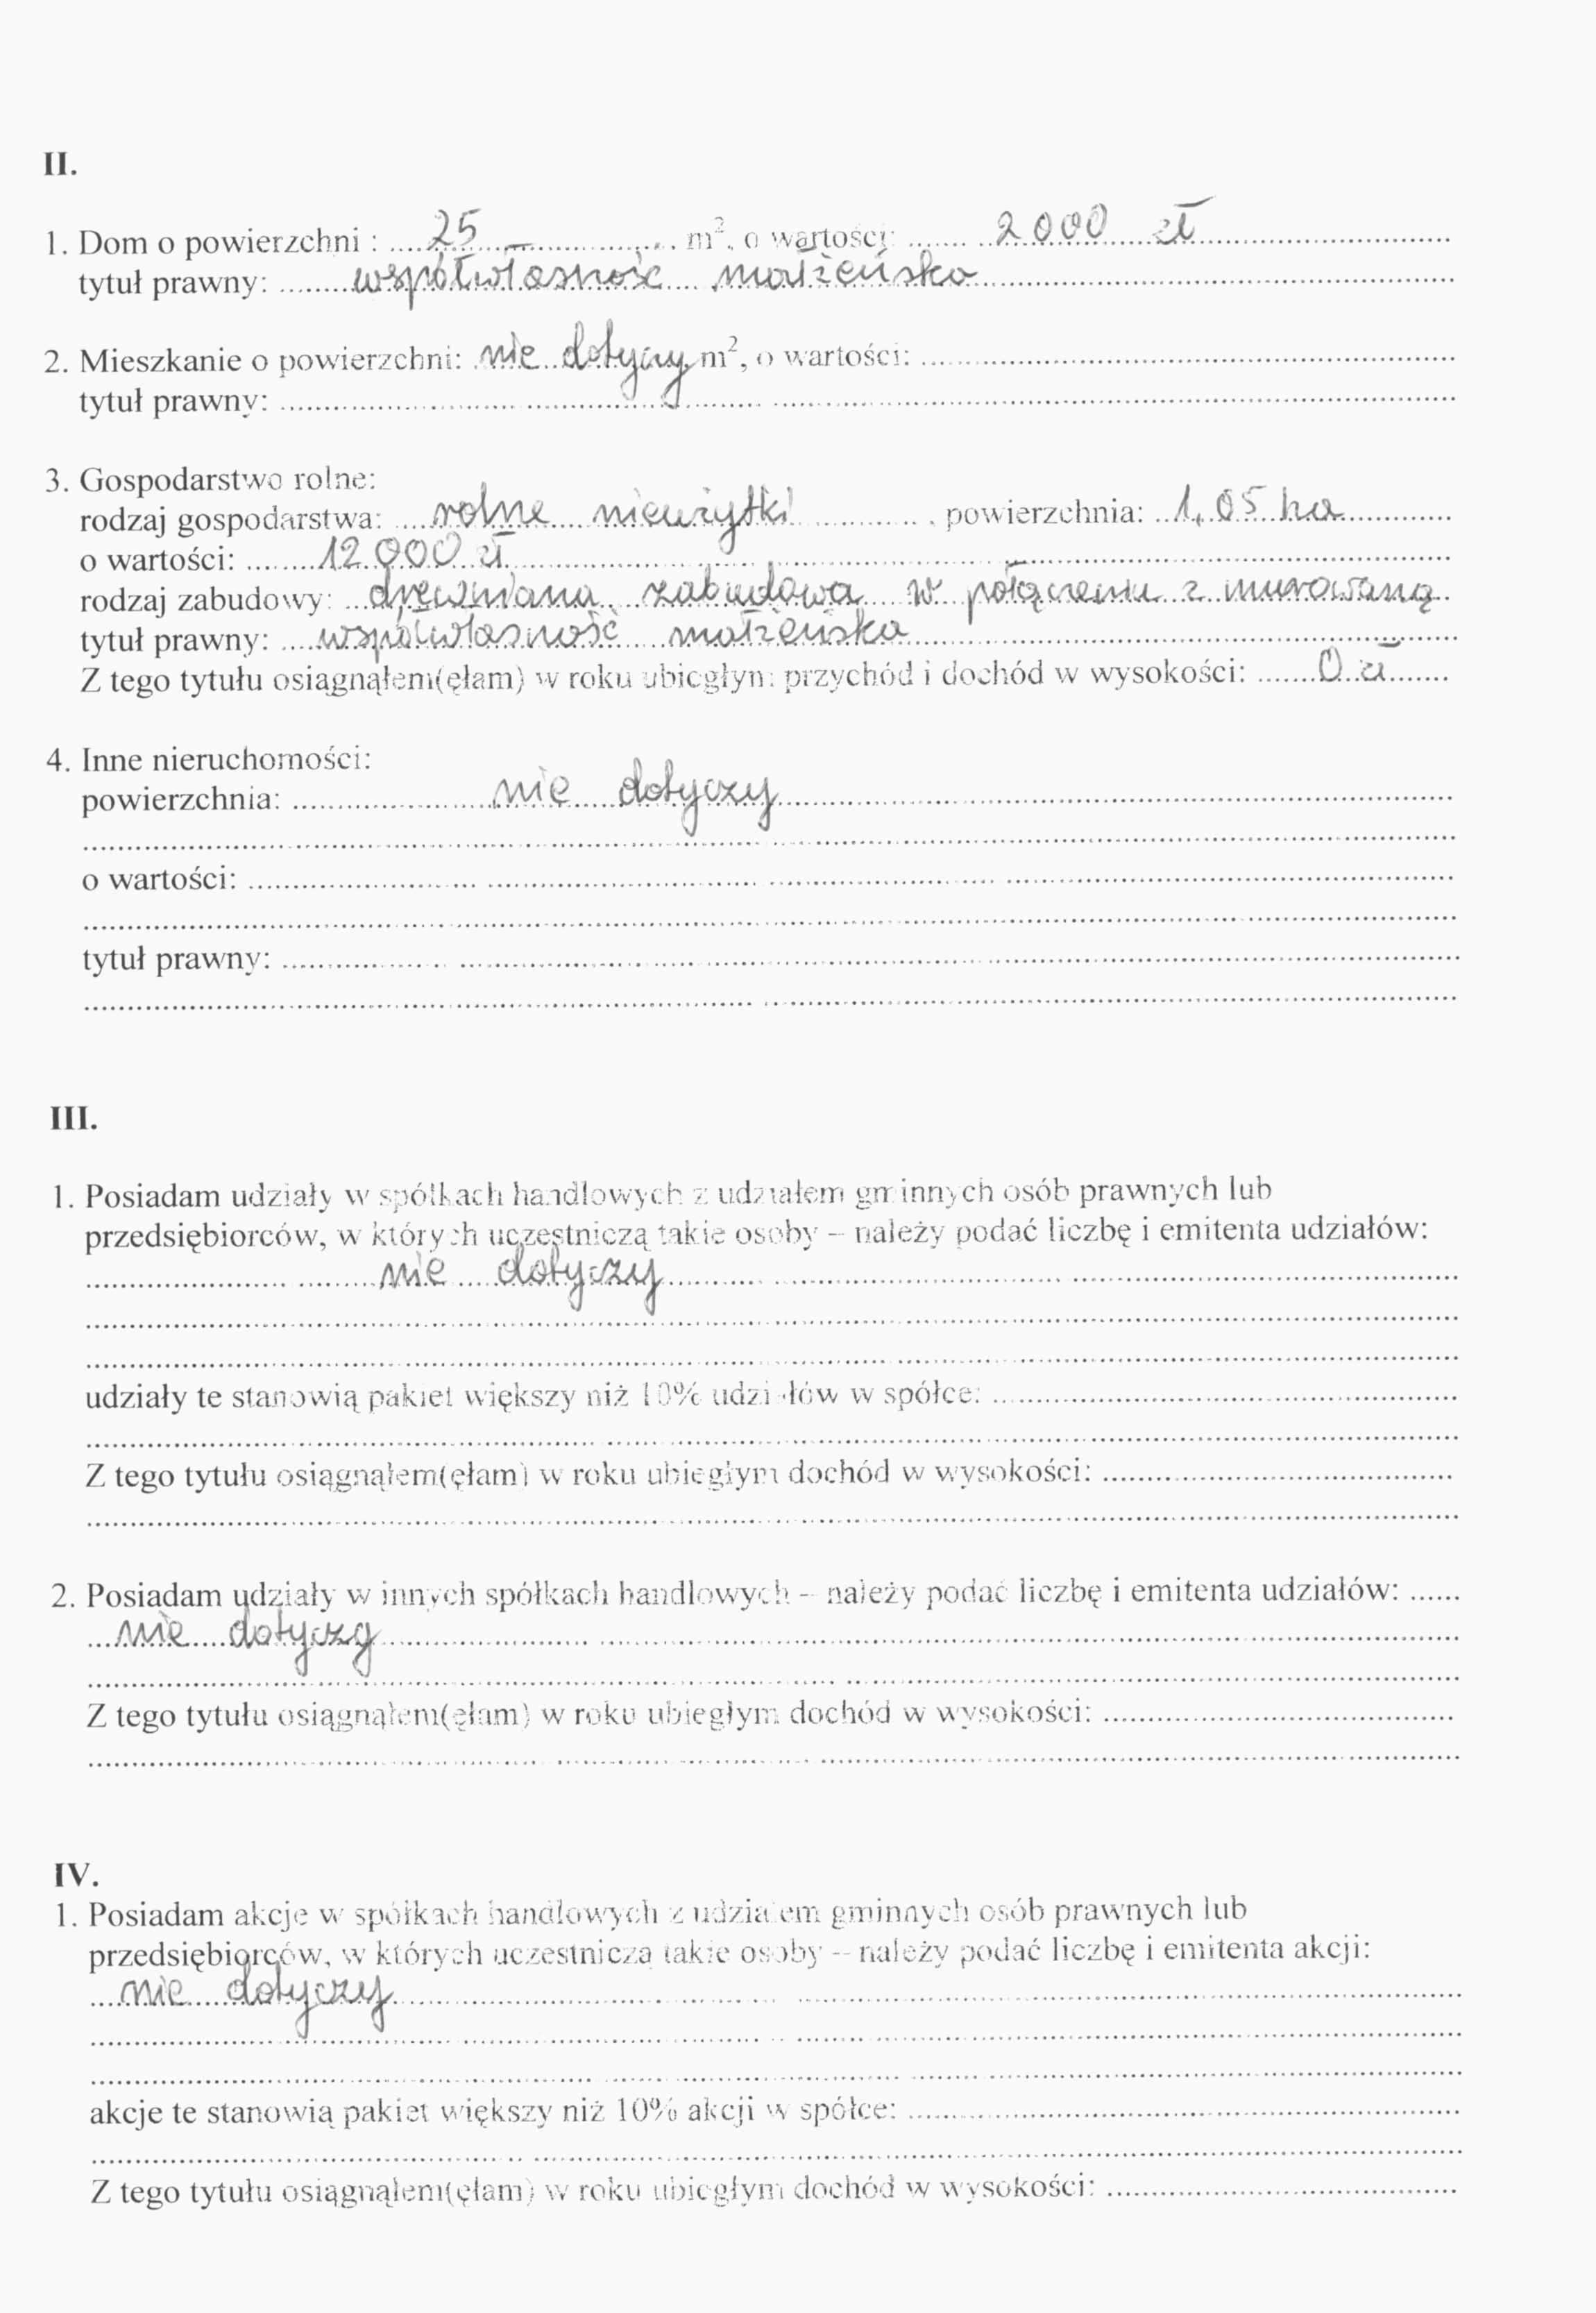 II.
1. Dom o powierzchni : 25 m², o wartości: 2000 zł
tytuł prawny: współwłasność małżeńska
2. Mieszkanie o powierzchni: nie dotyczy m², o wartości:
tytuł prawny:
3. Gospodarstwo rolne:
rodzaj gospodarstwa: rolne nieużytki , powierzchnia: 1,05 ha
o wartości: 12.000 zł
rodzaj zabudowy: drewniana zabudowa w połączeniu z murowaną
tytuł prawny: współwłasność małżeńska
Z tego tytułu osiągnąłem(ęłam) w roku ubiegłym przychód i dochód w wysokości: 0 zł
4. Inne nieruchomości:
powierzchnia: nie dotyczy
o wartości:
tytuł prawny:
III.
1. Posiadam udziały w spółkach handlowych z udziałem gminnych osób prawnych lub
przedsiębiorców, w których uczestniczą takie osoby – należy podać liczbę i emitenta udziałów:
nie dotyczy
udziały te stanowią pakiet większy niż 10% udziałów w spółce:
Z tego tytułu osiągnąłem(ęłam) w roku ubiegłym dochód w wysokości:
2. Posiadam udziały w innych spółkach handlowych – należy podać liczbę i emitenta udziałów:
nie dotyczy
Z tego tytułu osiągnąłem(ęłam) w roku ubiegłym dochód w wysokości:
IV.
1. Posiadam akcje w spółkach handlowych z udziałem gminnych osób prawnych lub
przedsiębiorców, w których uczestniczą takie osoby – należy podać liczbę i emitenta akcji:
nie dotyczy
akcje te stanowią pakiet większy niż 10% akcji w spółce:
Z tego tytułu osiągnąłem(ęłam) w roku ubiegłym dochód w wysokości: